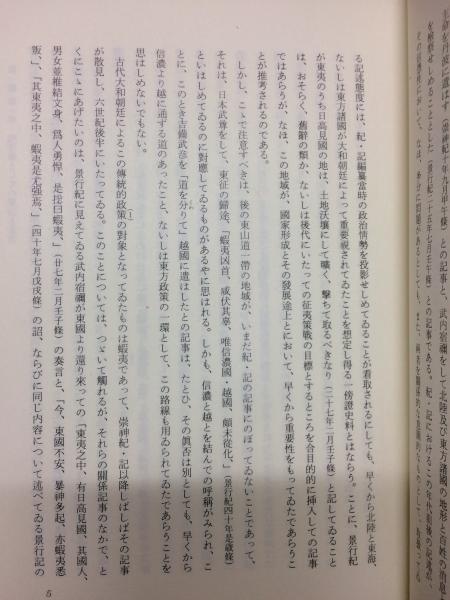 主命を丹波に遣はす（崇神紀十年九月甲午條）との記事と、武内宿禰をして北陸及び東方諸國の地形と百姓の消息
を視察せしめることとした（景行紀二十五年七月壬午條）との記事である。紀・記におけるこの年代前後の記述が、
る記述態度には、紀・記編纂當時の政治情勢を投影せしめてゐることが看取されるにしても、早くから北陸と東海、
ないしは東方諸國が大和朝廷によって重要視されてゐたことを想定し得る一傍證史料とはならう。ことに、景行紀
が東夷のうち日高見國の地は、土地沃壤にして曠く、擊ちて取るべきなり（二十七年二月壬子條）と記してゐること
は、おそらく、舊辭の類か、ないしは後代にいたっての征夷策戰の目標とするところを合目的的に挿入しての記事
ではあらうが、なほ、この地域が、國家形成とその發展途上とにおいて、早くから重要性をもってゐたであらうこ
とが推考されるのである。
しかし、こゝで注意すべきは、後の東山道一帶の地域が、いまだ紀・記の記事にのぼってゐないことであって、
それは、日本武尊をして、東征の歸途、「蝦夷凶首、咸伏其辜、唯信濃國・越國、頗未從化、」（景行紀四十年是歲條）
といはしめてゐるのに對應してゐるものがあるやに思はれる。しかも、信濃と越とを結んでの呼稱がみられ、こ
とに、このとき吉備武彥を「道を分りて」越國に遣はしたとの記事は、たとひ、その眞否は別としても、早くから
信濃より越に通ずる道のあったこと、ないしは東方政策の一環として、この路線も用ゐられてゐたであらうことを
思はしめないでもない。
古代大和朝廷によるこの傳統的政策(1)の對象となってゐたものは蝦夷であって、崇神紀・記以降しばしばその記事
が散見し、六世紀後半にいたってゐる。このことについては、つゞいて觸れるが、それらの關係記事のなかで、と
くにこゝにあげたいのは、景行紀に見えてゐる武内宿禰が東國より還り來っての「東夷之中、有日高見國、其國人、
男女並椎結文身、爲人勇悍、是摠曰蝦夷、」（廿七年二月壬子條）の奏言と、「今、東國不安、暴神多起、亦蝦夷悉
叛、」、「其東夷之中、蝦夷是尤强焉、」（四十年七月戊戌條）の詔、ならびに同じ内容について述べてゐる景行記の
5